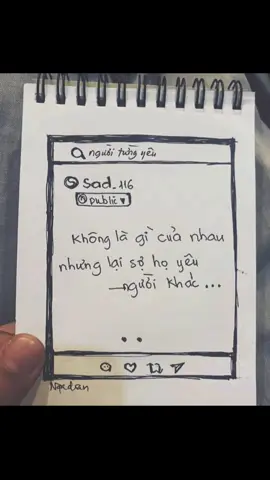 người từng yêu
sad_116
public
Không là gì của nhau
nhưng lại sợ họ yêu
người khác...